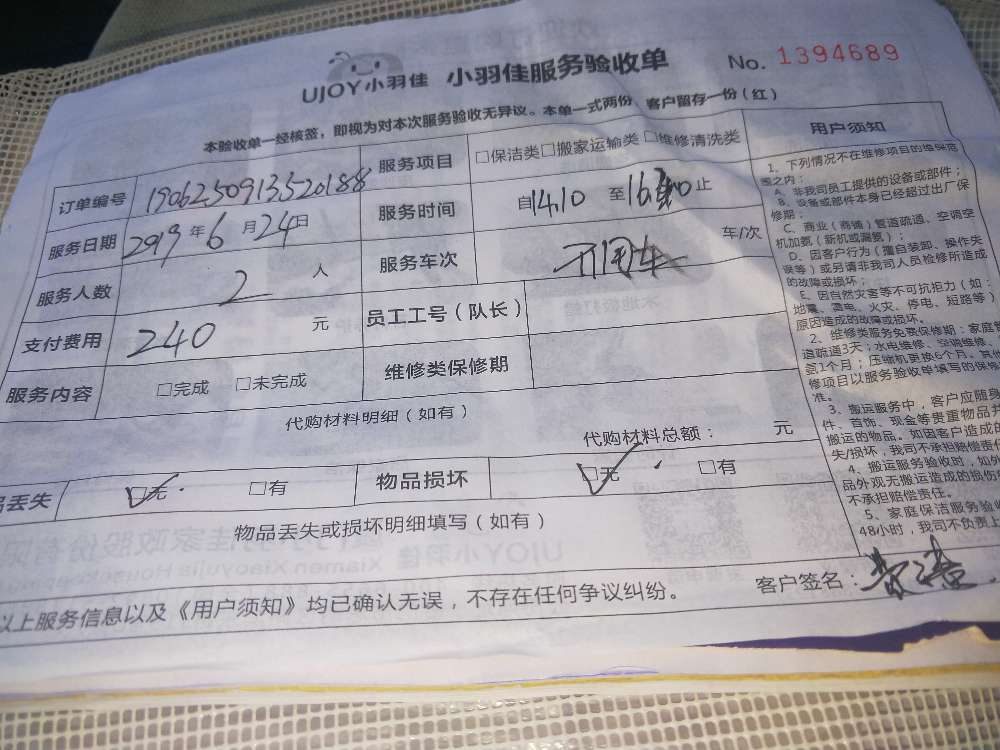 UJOY小羽佳 小羽佳服务验收单 No. 1394689
本验收单一经核签，即视为对本次服务验收无异议。本单一式两份，客户留存一份（红）
订单编号 1906250913520188 服务项目 □保洁类□搬家运输类□维修清洗类
服务日期 2019年6月24日 服务时间 自14.10 至16 止
服务人数 2 人 服务车次 不用车 车/次
支付费用 240 元 员工工号（队长）
服务内容 □完成 □未完成 维修类保修期
代购材料明细（如有）
代购材料总额： 元
品丢失 □无 □有 物品损坏 □无 □有
物品丢失或损坏明细填写（如有）
以上服务信息以及《用户须知》均已确认无误，不存在任何争议纠纷。 客户签名：
用户须知
1、下列情况不在维修项目的维保范
围之内：
A、非我司员工提供的设备或部件；
B、设备或部件本身已经超过出厂保
修期；
C、商业（商铺）管道疏通、空调空
机加氨（新机或漏氨）；
D、因客户行为（擅自装卸、操作失
误等）或另请非我司人员检修所造成
的故障或损坏；
E、因自然灾害等不可抗拒力（如：
地震、雷电、火灾、停电、短路等）
原因造成的故障或损坏。
2、维修类服务免费保修期：家庭管
道疏通3天；水电维修、空调维修、
氨1个月；压缩机更换6个月。其他
修项目以服务验收单填写的保修
准。
3、搬运服务中，客户应随身
件、首饰、现金等贵重物品
搬运的物品。如因客户造成的
失/损坏，我司不承担赔偿责
4、搬运服务验收时，如外
品外观无搬运造成的损伤
不承担赔偿责任。
5、家庭保洁服务验收
48小时，我司不负责上